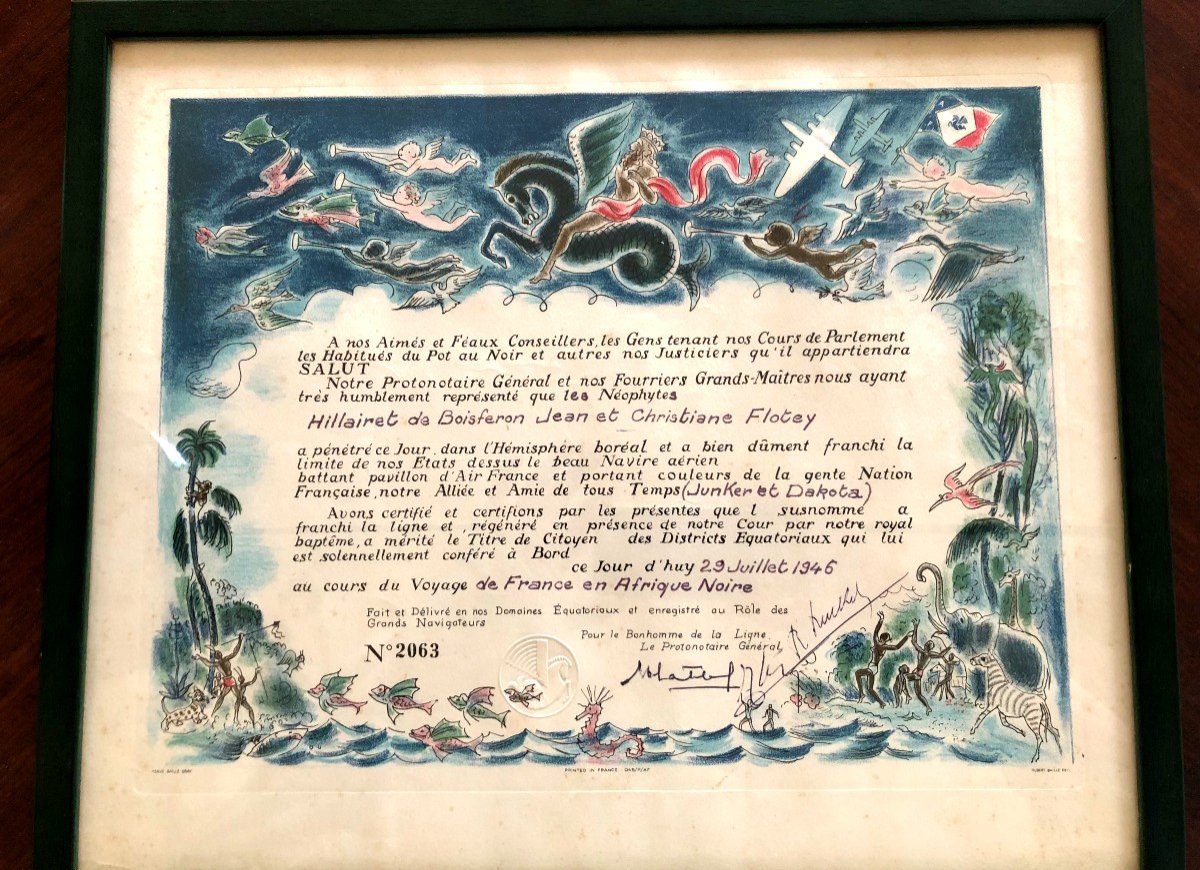 A nos Aimés et Féaux Conseillers, les Gens tenant nos Cours de Parlement
les Habitués du Pot au Noir et autres nos Justiciers qu'il appartiendra
SALUT
Notre Protonotaire Général et nos Fourriers Grands-Maîtres nous ayant
très humblement représenté que les Néophytes
Hillairet de Boisferon Jean et Christiane Flotey
a pénétré ce Jour dans l'Hémisphère boréal et a bien dûment franchi la
limite de nos Etats dessus le beau Navire aérien
battant pavillon d'Air France et portant couleurs de la gente Nation
Française, notre Alliée et Amie de tous Temps (Junker et Dakota)
Avons certifié et certifions par les présentes que l susnommé a
franchi la ligne et, régénéré en présence de notre Cour par notre royal
baptême, a mérité le Titre de Citoyen des Districts Equatoriaux qui lui
est solennellement conféré à Bord
ce Jour d'huy 29 Juillet 1946
au cours du Voyage de France en Afrique Noire
Fait et Délivré en nos Domaines Équatoriaux et enregistré au Rôle des
Grands Navigateurs
Pour le Bonhomme de la Ligne
Le Protonotaire Général,
N° 2063
PRINTED IN FRANCE